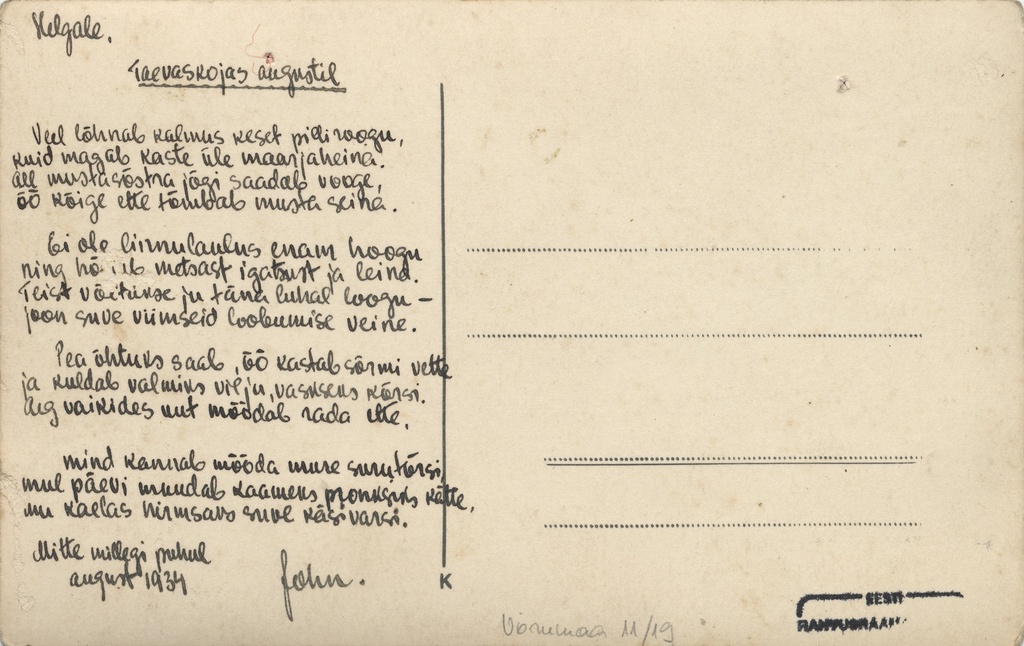 Helgale.
Taevaskojas augustil
Veel lõhnab kalmus keset pidi roogu,
kuid magab kaste üle maarjaheina.
All mustasõstra jõgi saadab vooge,
öö kõige ette tõmbab musta seina.
Ei ole linnulaulus enam hoogu
ning metsast igatsust ja leina.
Teist võitukse ju täna luhal loogu –
joon suve viimseid loobumise veine.
Pea õhtuks saab, öö kastab sõrmi vette
ja kuldab valmiks vilju, vaskseks kõrsi.
Aeg vaikides uut möödab rada ette.
mind kannab mööda mure
mul päevi muudab kaameks pronksiks kätte,
mu kaelas hirmsavs suve käsivarsi.
Mitte millegi puhul
august 1934
John.
K
Võrumaa 11/19
EESTI